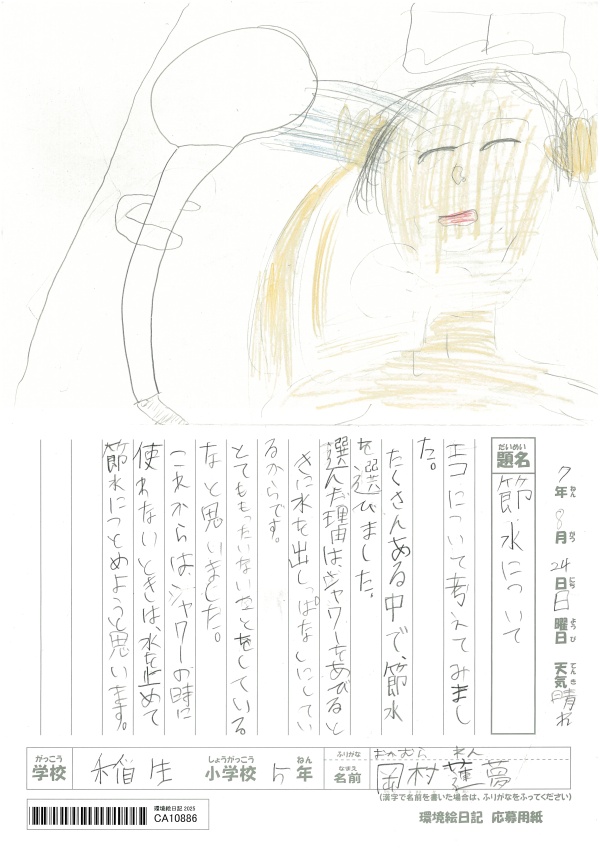 7年ねん 8月がつ 24日にち 日曜日ようび 天気てんき 晴れ
だいめい
題名
節水について
エコについて考えてみまし
た。
たくさんある中で、節水
を選びました。
選んだ理由は、シャワーをあびると
きに水を出しっぱなしにしてい
るからです。
とてももったいないことをしている
なと思いました。
これからは、シャワーの時に
使わないときは、水を止めて
節水につとめようと思います。
がっこう
学校
稲生
しょうがっこう
小学校
5
ねん
年
ふりがな
おかむら れん
なまえ
名前
岡村蓮夢
(漢字で名前を書いた場合は、ふりがなをふってください)
環境絵日記 2025
CA10886
環境絵日記 応募用紙